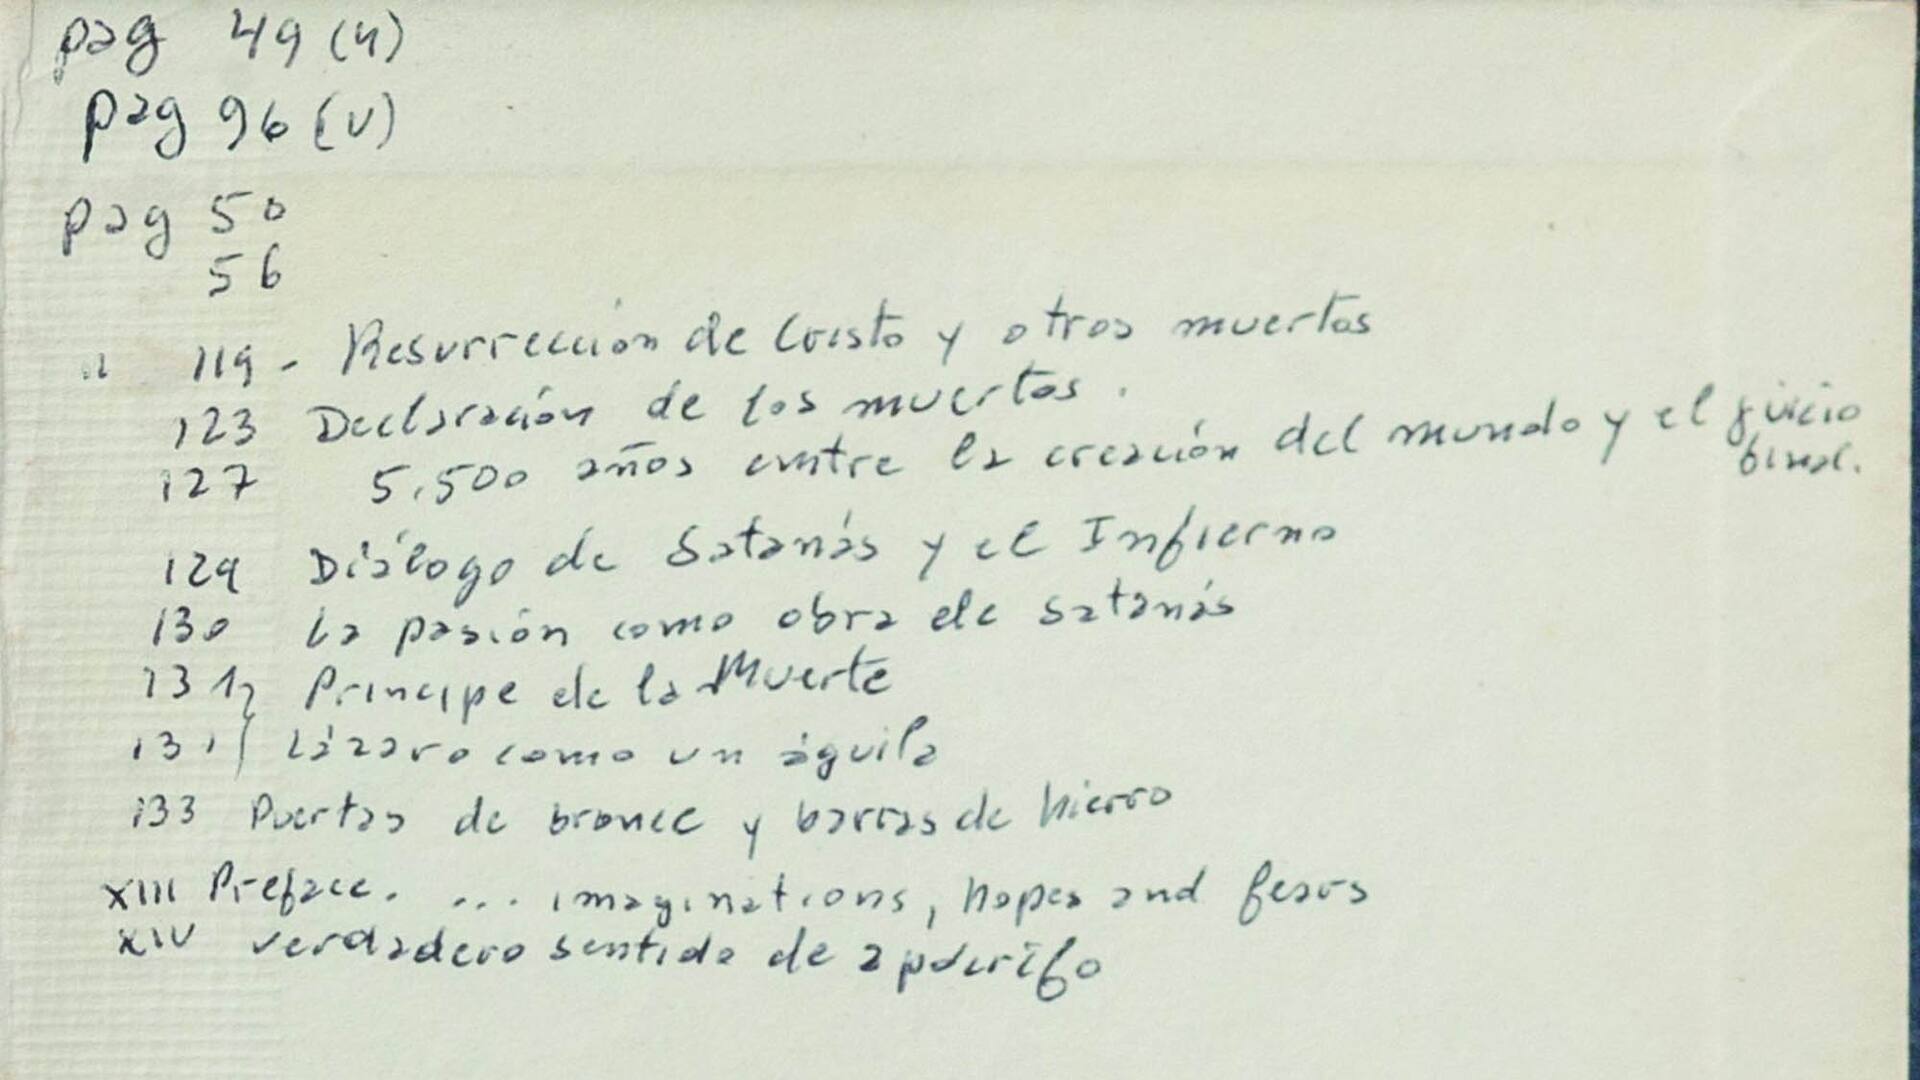 pag 49 (4)
pag 96 (V)
pag 50
56
" 119 - Resurrección de Cristo y otros muertos
123 Declaración de los muertos.
127 5.500 años entre la creación del mundo y el juicio
final.
129 Diálogo de Satanás y el Infierno
130 La pasión como obra de Satanás
131 Principe de la Muerte
131 Lázaro como un águila
133 Puertas de bronce y barras de hierro
XIII Preface. ... imaginations, hopes and fears
XIV verdadero sentido de apócrifo